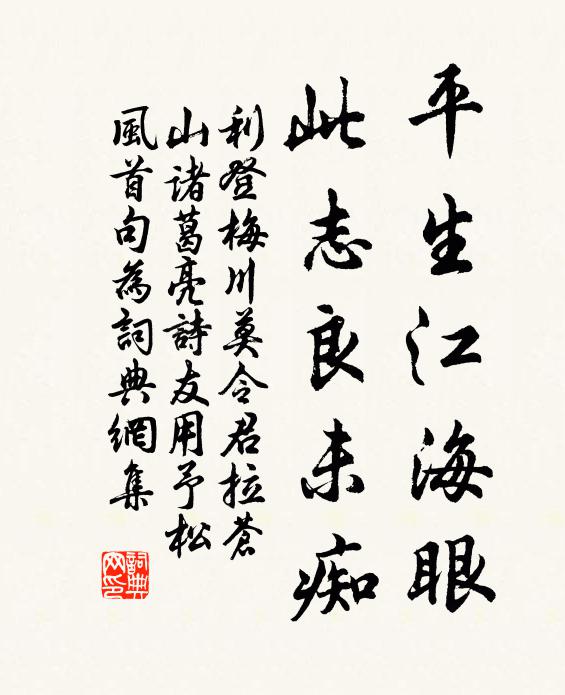 平生江海眼
此志良未痴
利登梅川莫令君拉蒼
山諸葛亮詩友用予松
風首句為詞典網集
詞典網印